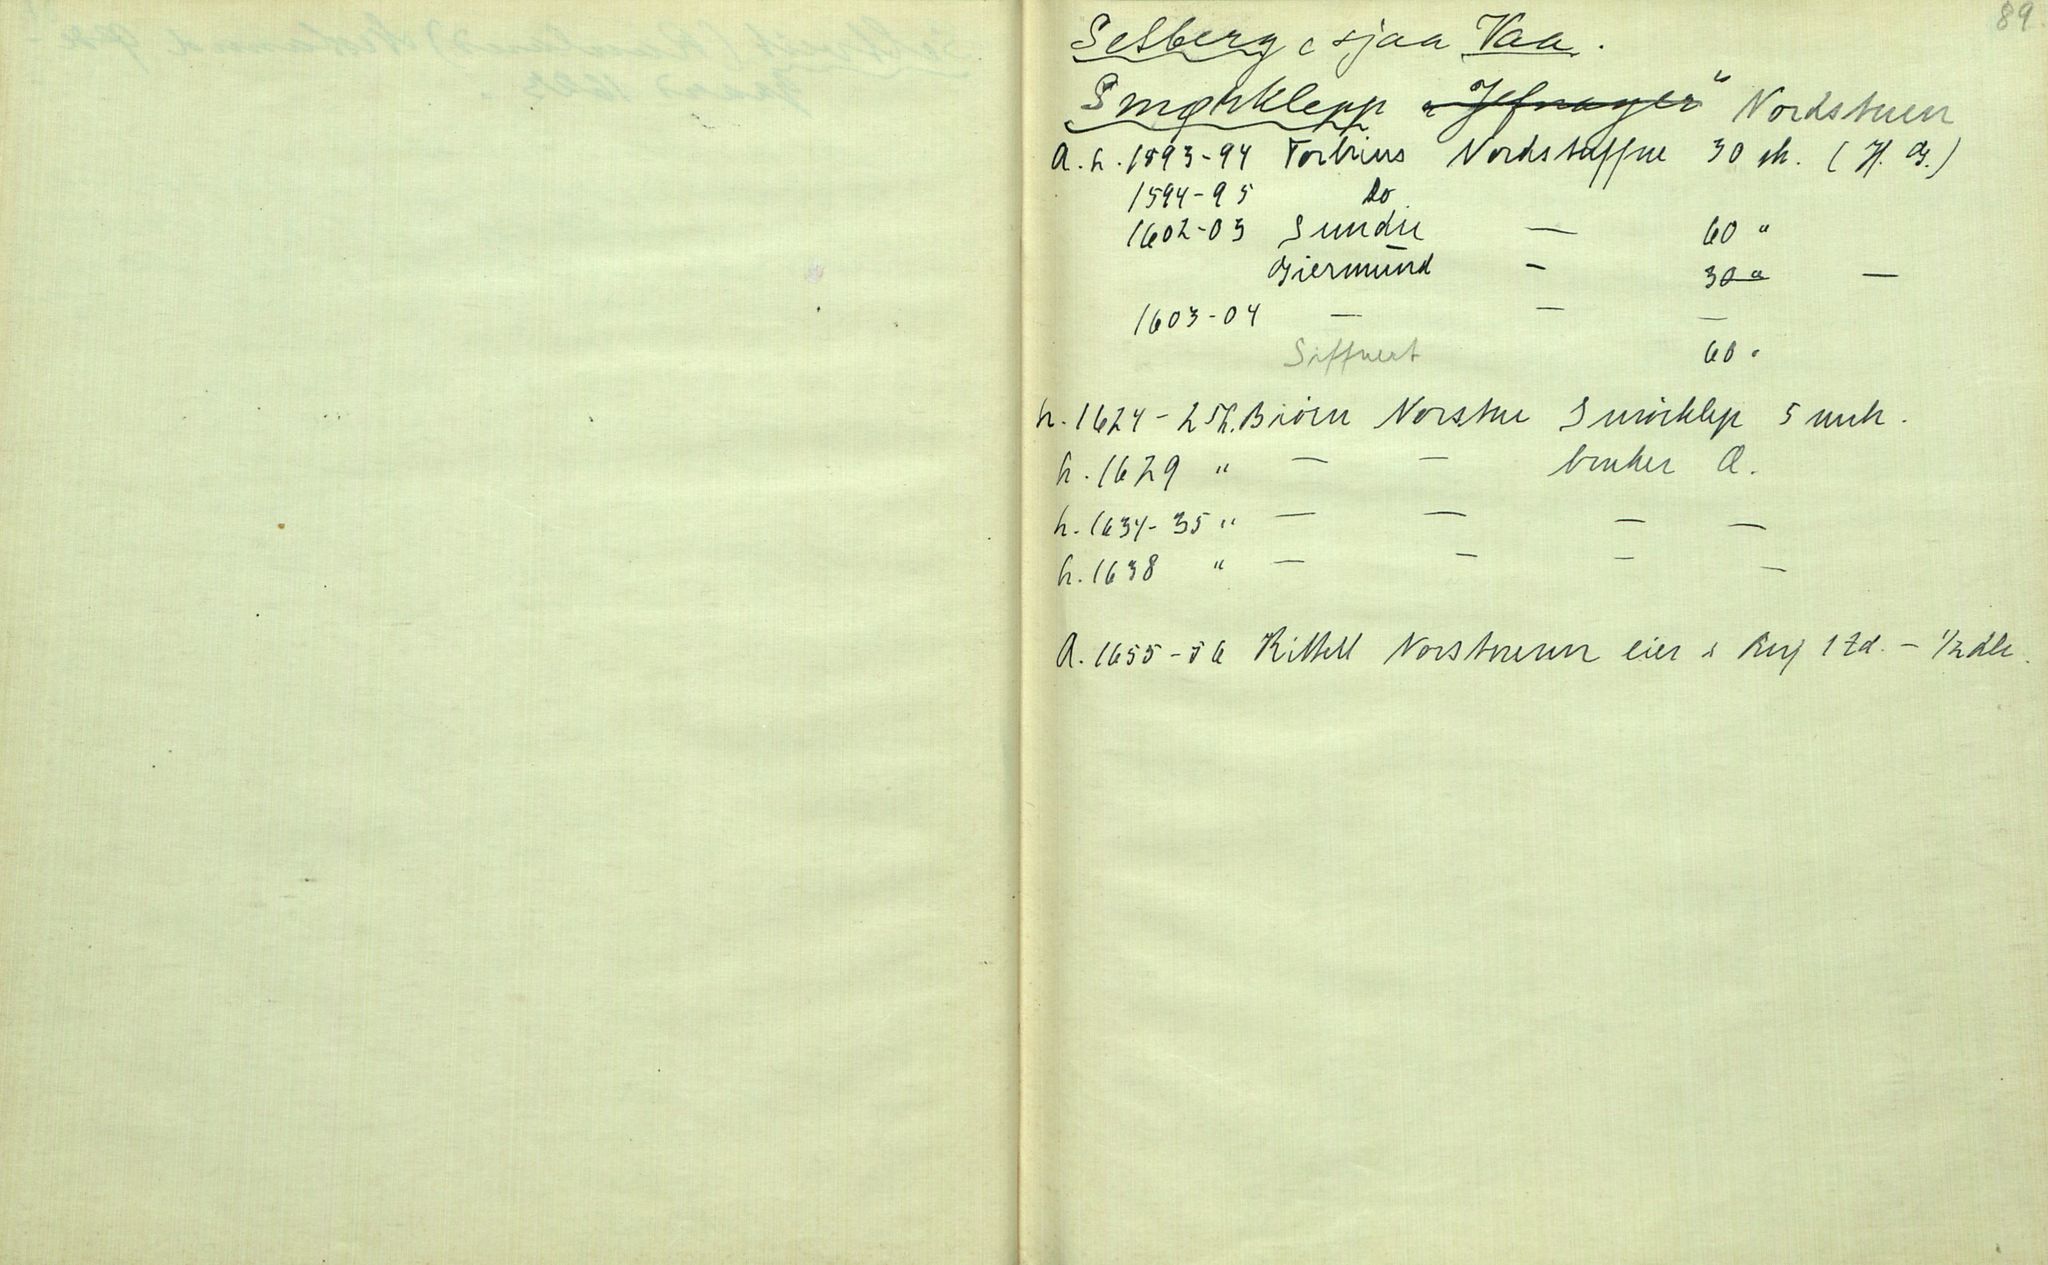 89.
Selberg, sjaa Vaa.
Smørklepp Nordstuen
A. h. 1593-94 Torbiøns Nordstuffue 30 sk. (H. G.)
1594-95 Do
1602-03 Gundu — 60 "
Giermund - 30 " —
1603-04 — — —
Siffuert 60 "
h. 1624-25 Biörn Norstue Smörklep 5 mrk.
h. 1629 " — — bruker A.
h. 1634-35 " — — — —
h. 1638 " — — — —
A. 1655-56 Kittell Norstuenn eier i Ruj 1 td. - 1/2 dlr.